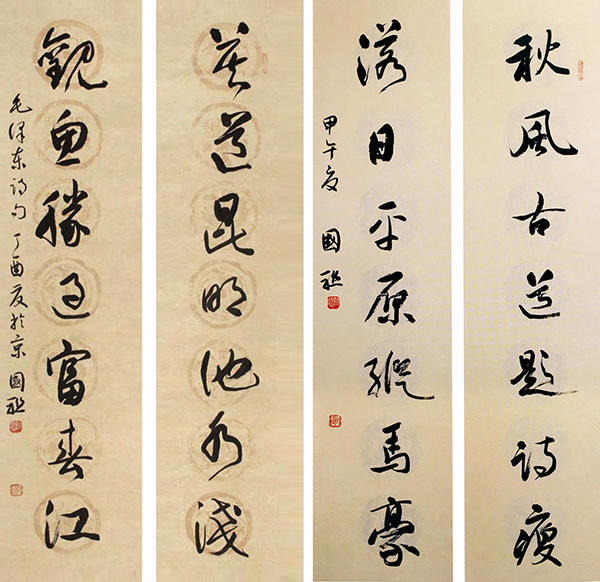 秋風古道題詩瘦
落日平原縱馬豪
甲午夏 國
莫道昆明池水淺
觀魚勝過富春江
毛澤東詩句 丁酉夏於京 國